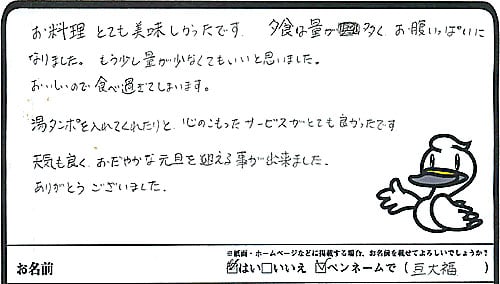 お料理 とても美味しかったです。 夕食は量が多く お腹いっぱいに
なりました。 もう少し量が少なくてもいいと思いました。
おいしいので 食べ過ぎてしまいます。
湯タンポを入れてくれたりと、心のこもったサービスがとても良かったです
天気も良く、おだやかな元旦を迎える事が出来ました。
ありがとう ございました。
※紙面・ホームページなどに掲載する場合、お名前を載せてよろしいでしょうか?
お名前 ☑はい□いいえ ☑ペンネームで ( 豆大福 )